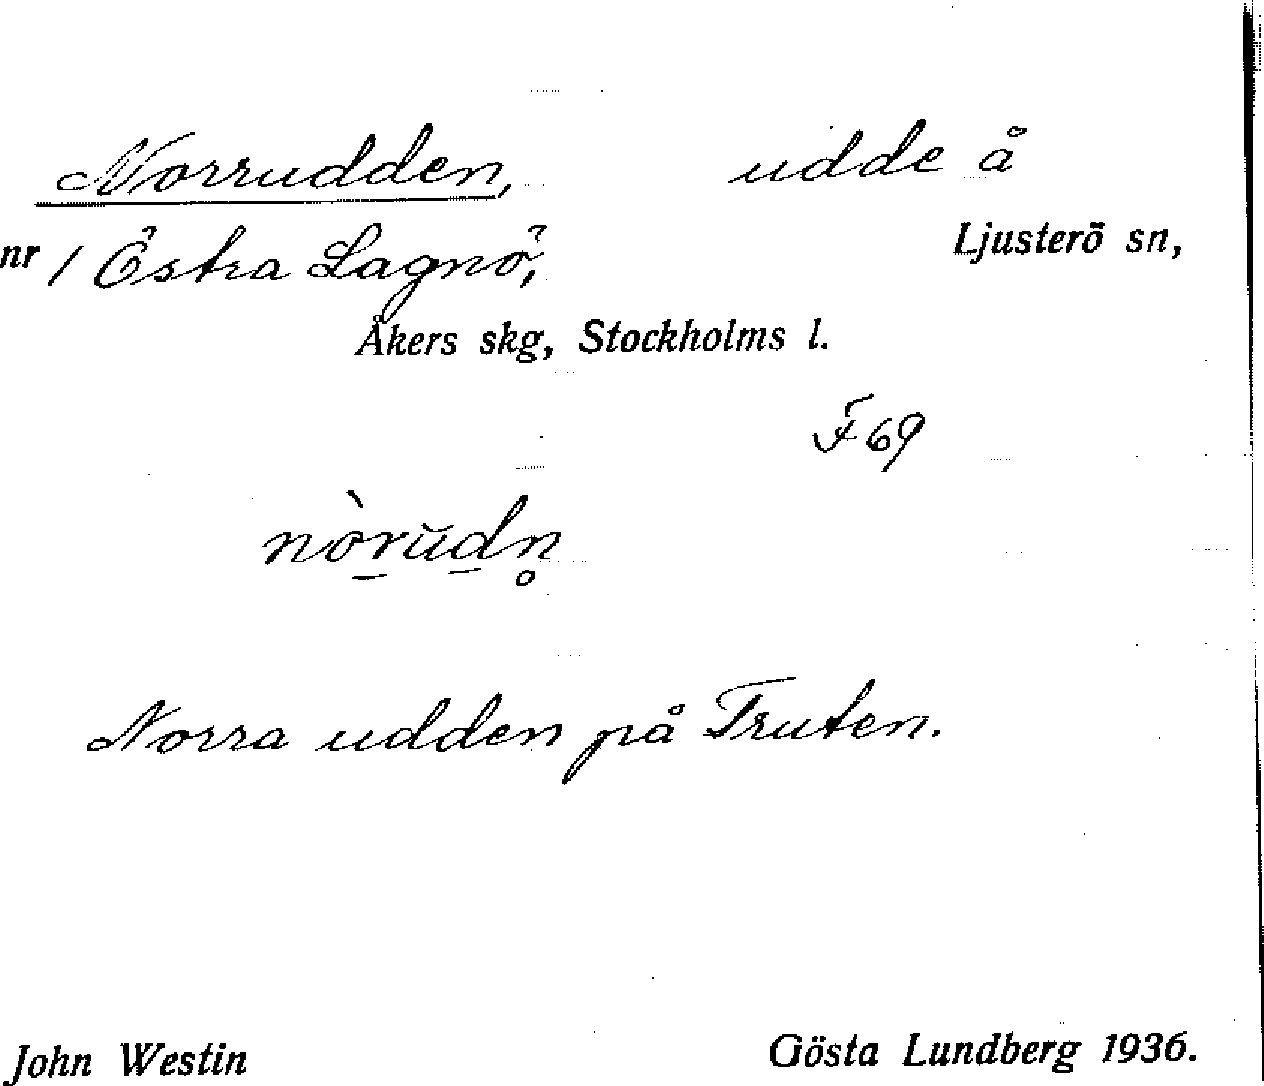 Norrudden, udde å
nr 1 Östra Lagnö, Ljusterö sn,
Åkers skg, Stockholms l.
F 69
nòrŭdn̥
Norra udden på Truten.
John Westin Gösta Lundberg 1936.